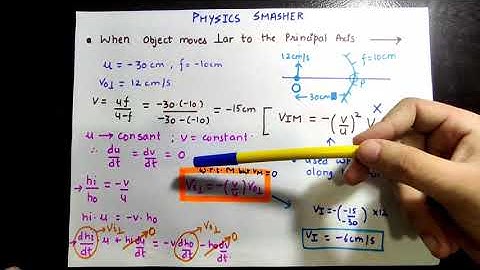 PHYSICS SMASHER
When Object moves ⊥ar to the Principal Axis
u = -30cm, f = -10cm
VO⊥ = 12 cm/s
V = uf/u-f = -30·(-10)/-30-(-10) = -15cm
u → consant ; v = constant
∴ du/dt = dv/dt = 0
hi/ho = -v/u
hi·u = -v·ho
dhi/dt u + hi du/dt = -v dho/dt - ho dv/dt
Vi⊥
0
VO⊥
0
Vi⊥ = -(v/u) VO⊥
12cm/s
f=10cm
O
P
30cm
VIM = -(v/u)² V
X
used w
along
VI = -(-15/-30) × 12
VI = -6cm/s